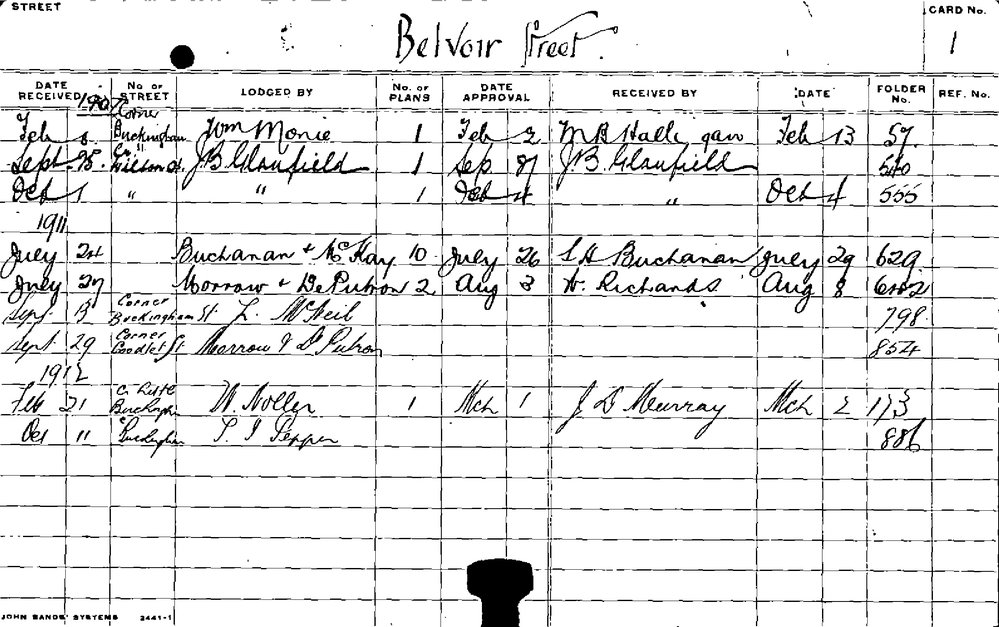 STREET
Belvoir Street.
CARD No.
1
DATE RECEIVED No. OF STREET LODGED BY No. OF PLANS DATE APPROVAL RECEIVED BY DATE FOLDER No. REF. No.
Corner
Feb Buckingham Wm Monie 1 Feb 2 M B Halli gan Feb 13 57
Sept 25 J.B. Glanfield 1 Sep J.B. Glanfield 540
Oct 1 " " 1 Oct 4 " Oct 4 555
1911
July 24 Buchanan & McKay 10 July 26 S H Buchanan July 29 629
July 27 Morrow & De Putron 2 Aug 3 W. Richards Aug 8 642
Sept 13 Corner Buckingham St. L. McNeil 798
Sept 29 Corner Goodlet St Morrow & D Putron 854
1912
Feb 21 Buckingham W. Noller 1 Mch 1 J D Murray Mch 2 173
Oct 11 Buckingham Pepper 886
JOHN SANDS' SYSTEMS 2441-1